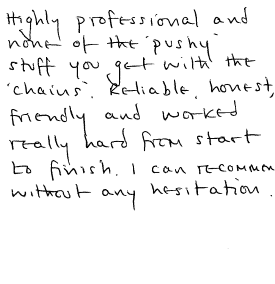 Highly professional and
none of the 'pushy'
stuff you get with the
'chains'. Reliable, honest,
friendly and worked
really hard from start
to finish. I can recommen
without any hesitation.